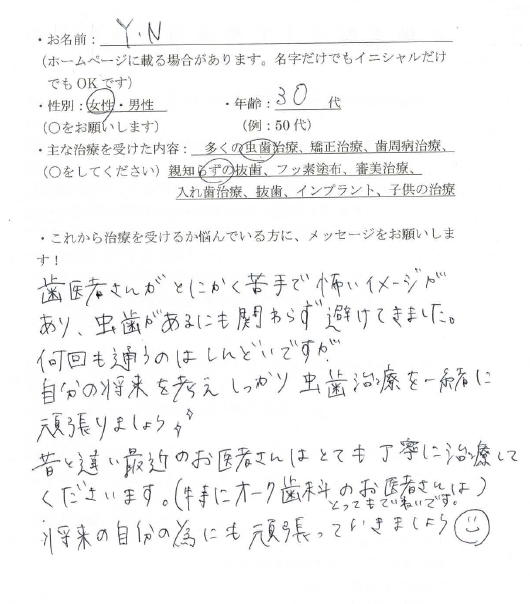 ・お名前： Y.N
（ホームページに載る場合があります。名字だけでもイニシャルだけ
でもOKです）
・性別：女性・男性 ・年齢：30 代
（○をお願いします） （例：50代）
・主な治療を受けた内容： 多くの虫歯治療、矯正治療、歯周病治療、
（○をしてください） 親知らずの抜歯、フッ素塗布、審美治療、
入れ歯治療、抜歯、インプラント、子供の治療
・これから治療を受けるか悩んでいる方に、メッセージをお願いしま
す！
歯医者さんがとにかく苦手で怖いイメージが
あり、虫歯があるにも関わらず避けてきました。
何回も通うのはしんどいですが
自分の将来を考えしっかり虫歯治療を一緒に
頑張りましょう
昔と違い最近のお医者さんはとても丁寧に治療して
くださいます。（特にオーク歯科のお医者さんは）
とってもていねいです。
将来の自分の為にも頑張っていきましょう